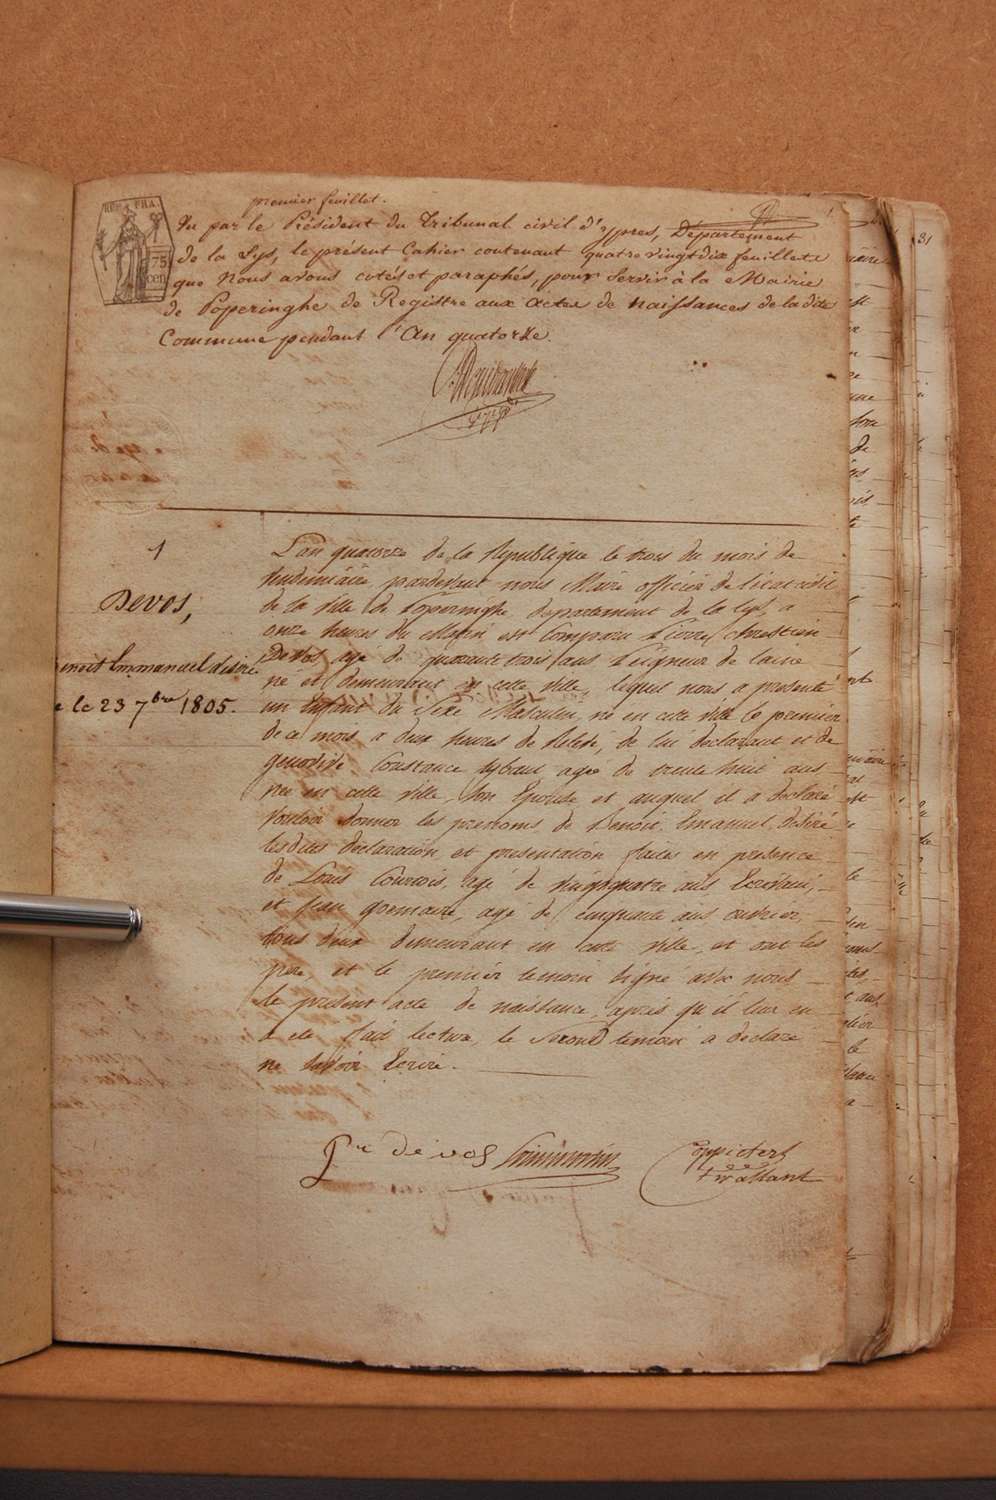 premier feuillet.
REP. FRA.
75
cen
Vu par le Président du Tribunal civil d'ypres, Département
de la Lys, le présent Cahier contenant quatre vingt dix feuillets
que Nous avons cotés et paraphés, pour Servir à la Mairie
de Poperinghe de Registre aux actes de naissances de la dite
Commune pendant l'An quatorze.
31
1
Devos,
Emmanuel désiré
le 23 7bre 1805.
L'an quatorze de la Republique le trois du mois de
Vendemiaire pardevant nous Maire officier de l'état civil
de la ville de Poperinghe, departement de la Lys, a
onze heures du Matin est Comparu Pierre Chrestien
Devos, agé de quarante trois ans Peigneur de laine
né et demeurant en cette ville, lequel nous a presenté
un Enfant du Sexe Masculin, né en cette ville le premier
de ce mois a deux heures de Relevé, de lui declarant et de
genovive Constance agée de trente huit ans
née en cette ville, son Epouse et auquel il a declaré
vouloir donner les prenoms de Benoit, Emanuel, desiré
lesdites declaration et presentation faites en presence
de Louis Courtois, agé de vingtquatre ans Ecrivain,
et jean germaire, agé de cinquante ans ouvrier,
tous deux demeurant en cette ville, et ont les
pere, et le premier temoin signé avec nous
le present acte de naissance, après qu'il leur en
a eté fait lecture, le second temoin a declaré
ne savoir Ecrire.
Pre devos